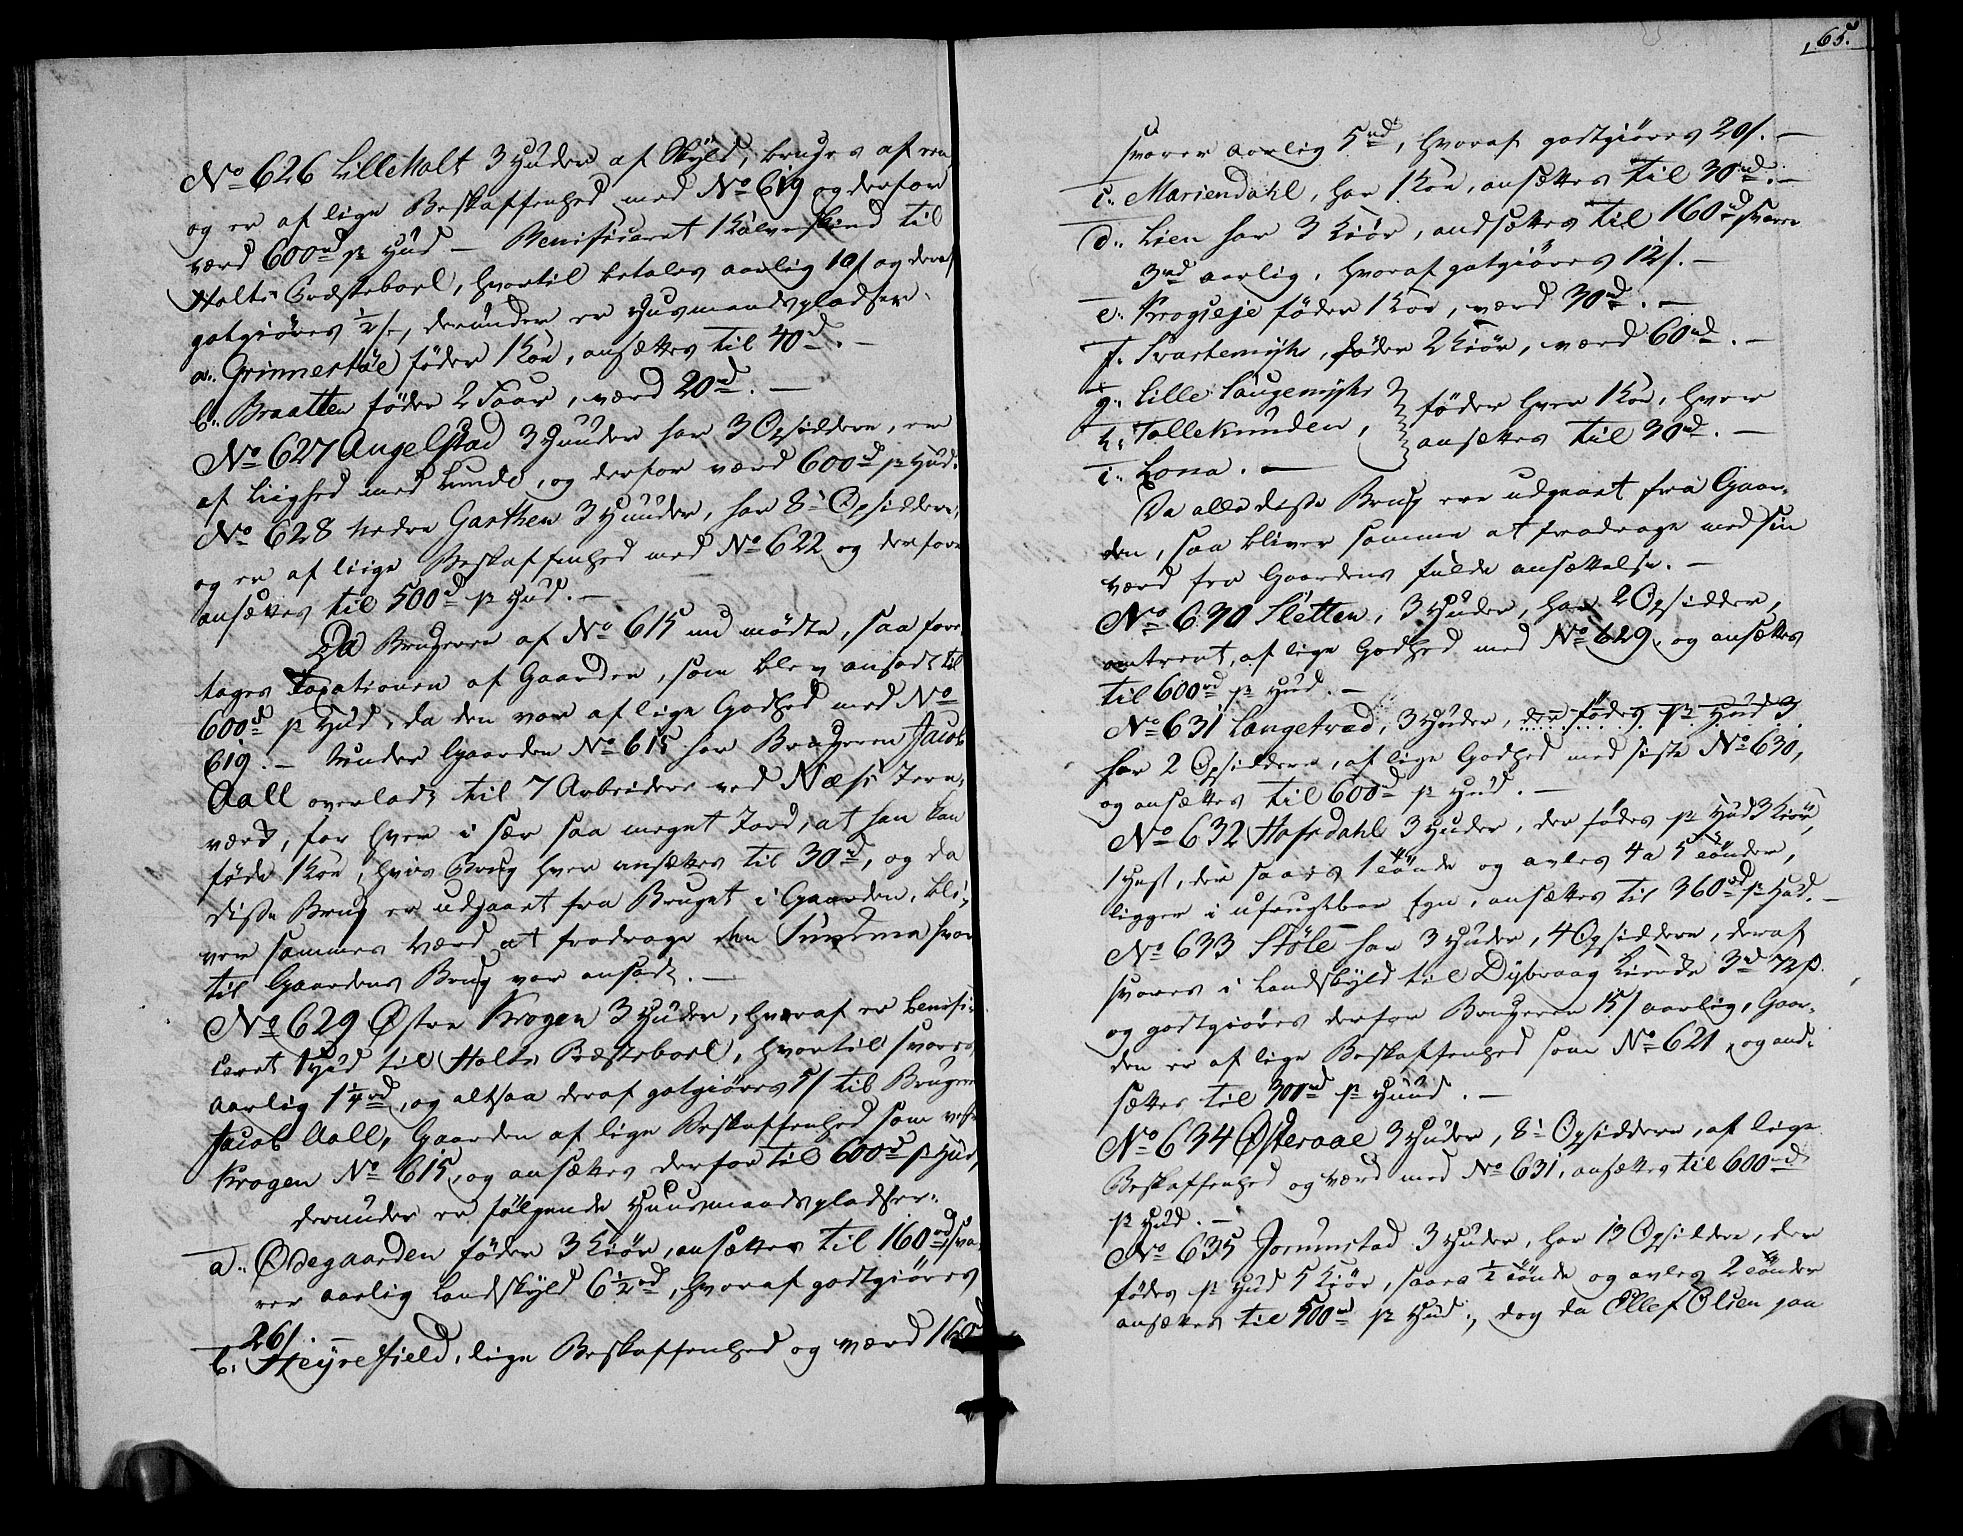 No 626 Lilleholt 3 Huder af Skyld, bruges af een
og er af lige Beskaffenhed med No 619 og derfor
værd 600rd pr Hud – Benificeret 1 Kalveskind til
Holts Præsteboel, hvortil betales aarlig 10s og deraf
gotgiøres 1/2s, derunder er Huusmandspladsene.
a. Grimmestøe føder 1 Koe, ansættes til 40rd. –
b. Braatten føder 2 Faar, værd 20rd. –
No 627 Angelstad 3 Huuder har 3 Opsiddere, er
af Liighed med Lunde, og derfor værd 600rd pr Hud.
No 628 Nedre Garthen 3 Huuder, har 8 Opsiddere,
og er af liige Beskaffenhed med No 622 og derfore
ansættes til 500rd pr Hud. –
Da Brugeren af No 615 nu mødte, saa fore-
tages Taxationen af Gaarden, som blev ansadt til
600rd pr Hud, da den var af lige Godhed med No
619. – Under Gaarden No 615 har Brugeren Jacob
Aall overladt til 7 Arbeidere ved Næss Jern-
værk, for hver i sær saa meget Jord, at han kan
føde 1 Koe, hvis Brug hver ansættes til 30rd, og da
disse Brug er udgaaet fra Bruget i Gaarden, bli-
ver sammes Værd at fradrage den Summa hvor
til Gaardens Brug var ansadt. –
No 629 Østre Krogen 3 Huder, hvoraf er benifi-
ceret 1 Hud til Holts Præsteboel, hvortil svares
aarlig 1 1/4rd, og altsaa deraf gotgiøres 5s til Brugeren
Jacob Aall, Gaarden af lige Beskaffenhed som vestre
Krogen No 615, og ansættes derfor til 600rd pr Hud,
derunder er følgende Huusmandspladser:
a. Ødegaarden føder 3 Kiør, ansættes til 160rd, sva-
rer aarlig Landskyld 6 1/2rd, hvoraf godtgiøres
26s. –
b. Heyrefield, lige Beskaffenhed og værd 160rd
165.
svarer aarlig 5rd, hvoraf godtgiøres 20s. –
c. Mariendahl, har 1 Koe, ansættes til 30rd. –
d. Lien har 3 Kiør, andsættes til 160rd svarer
3rd aarlig, hvoraf gotgiøres 12s. –
e. Krogieje føder 1 Koe, værd 30rd. –
f. Svartemyhr, føder 2 Kiør, værd 60rd. –
g. Lille Laugemyhr } føder hver 1 Koe, hver
h. Tollekunden, } ansættes til 30rd. –
i. Lona. –
Da alle disse Brug ere udgaaet fra Gaar-
den, saa bliver samme at fradrage med sin
værd fra Gaardens fulde ansættelse. –
No 630 Sletten, 3 Huder, har 2 Opsiddere,
omtrent, af lige Godhed med No 629, og ansættes
til 600rd pr Hud. –
No 631 Langetved, 3 Huder, der fødes pr Hud 3
har 2 Opsiddere, af lige Godhed med siste No 630,
og ansættes til 600rd pr Hud. –
No 632 Hofsdahl 3 Huder, der fødes pr Hud 3 Kiør,
1 Hest, der saaes 1 Tønde og avles 4 a 5 Tønder,
ligger i ufrugtbar Egn, ansættes til 360rd pr Hud. –
No 633 Støle har 3 Huder, 4 Opsiddere, deraf
svares i Landskyld til Dybvaag Kierke 3rd 72s.
og godtgiøres derfor Brugeren 15s aarlig, Gaar-
den er af lige Beskaffenhed som No 621, og and-
sættes til 300rd pr Huud. –
No 634 Østeraae 3 Huder, 8 Opsiddere, af lige
Beskaffenhed og værd med No 631, ansættes til 600rd
pr Hud. –
No 635 Jorumstad 3 Huder, har 13 Opsiddere, der
fødes pr Hud 5 Kiør, saaes 1/2 Tønde og avles 2 Tønder
ansættes til 500rd pr Hud, dog da Ellef Olsen paa